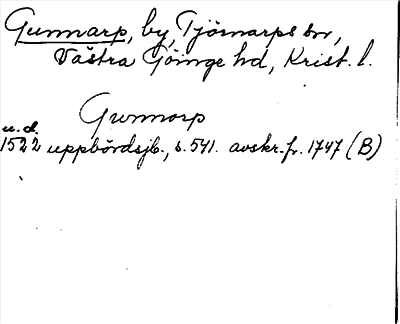 Gunnarp, by, Tjörnarps sn,
Västra Göinge hd, Krist. l.
Gunnorp
u.d.
1522 uppbördsjb., s. 541. avskr. fr. 1747 (B)